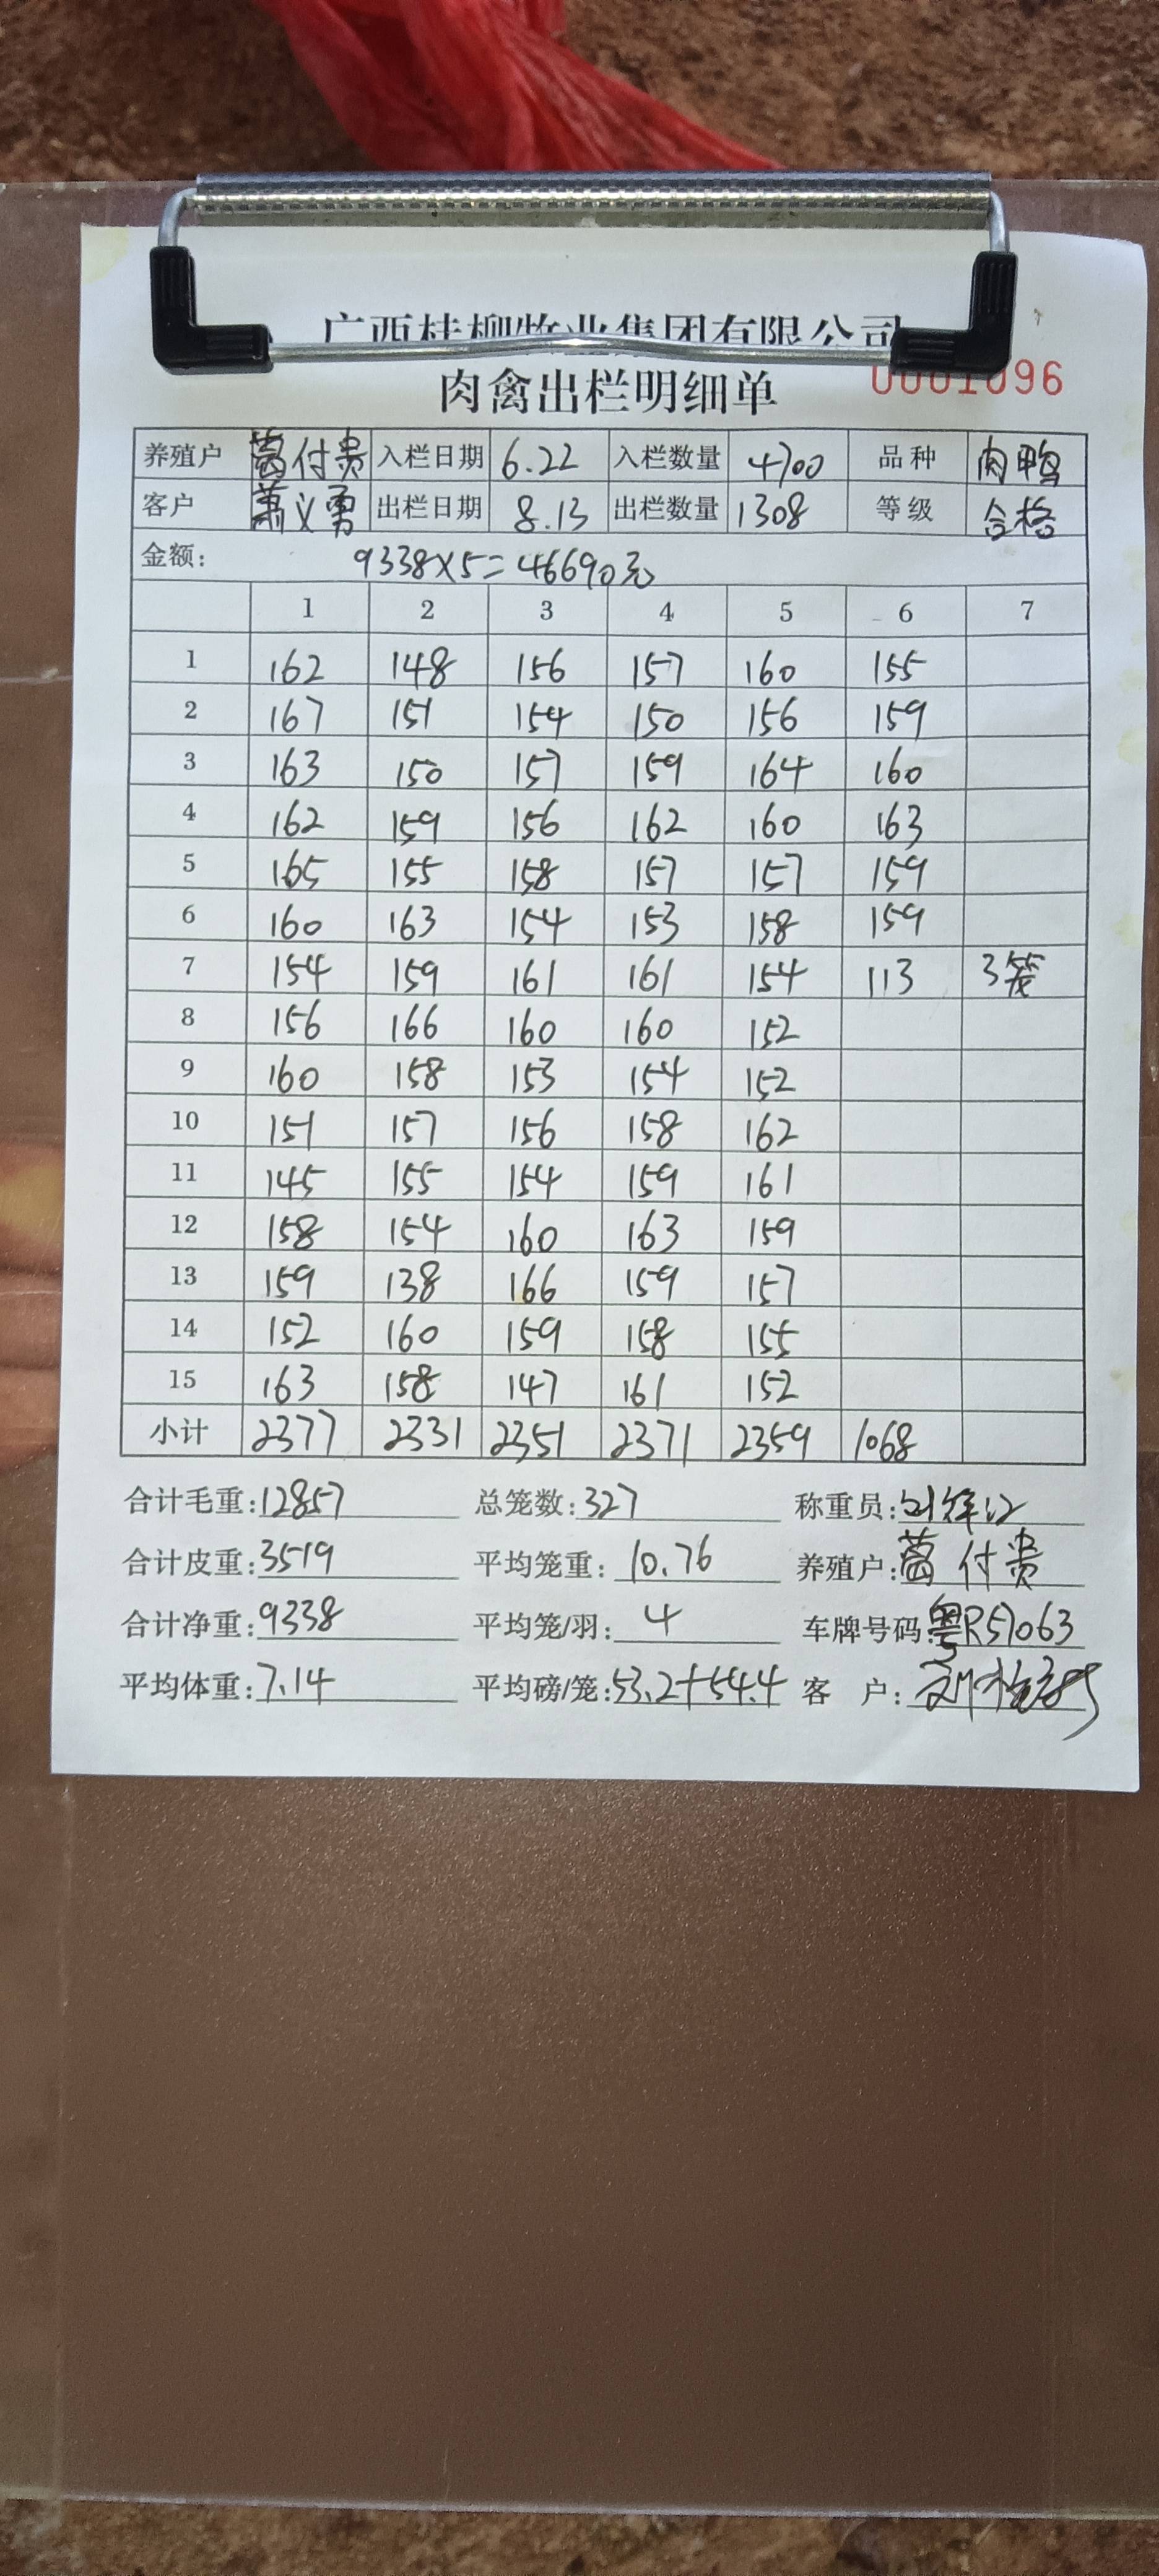 广西桂柳牧业集团有限公司
肉禽出栏明细单 0001096
养殖户 付贵 入栏日期 6.22 入栏数量 4700 品种 肉鸭
客户 萧义勇 出栏日期 8.13 出栏数量 1308 等级 合格
金额: 9338×5=46690元
1 2 3 4 5 6 7
1 162 148 156 157 160 155
2 167 151 154 150 156 159
3 163 150 157 159 164 160
4 162 159 156 162 160 163
5 165 155 158 157 157 159
6 160 163 154 153 158 159
7 154 159 161 161 154 113 3笼
8 156 166 160 160 152
9 160 158 153 154 152
10 151 157 156 158 162
11 145 155 154 159 161
12 158 154 160 163 159
13 159 138 166 159 157
14 152 160 159 158 155
15 163 158 147 161 152
小计 2377 2331 2351 2371 2359 1068
合计毛重:12857 总笼数:327 称重员:
合计皮重:3519 平均笼重:10.76 养殖户: 付贵
合计净重:9338 平均笼/羽:4 车牌号码:粤R57063
平均体重:7.14 平均磅/笼:53.2+54.4 客 户: